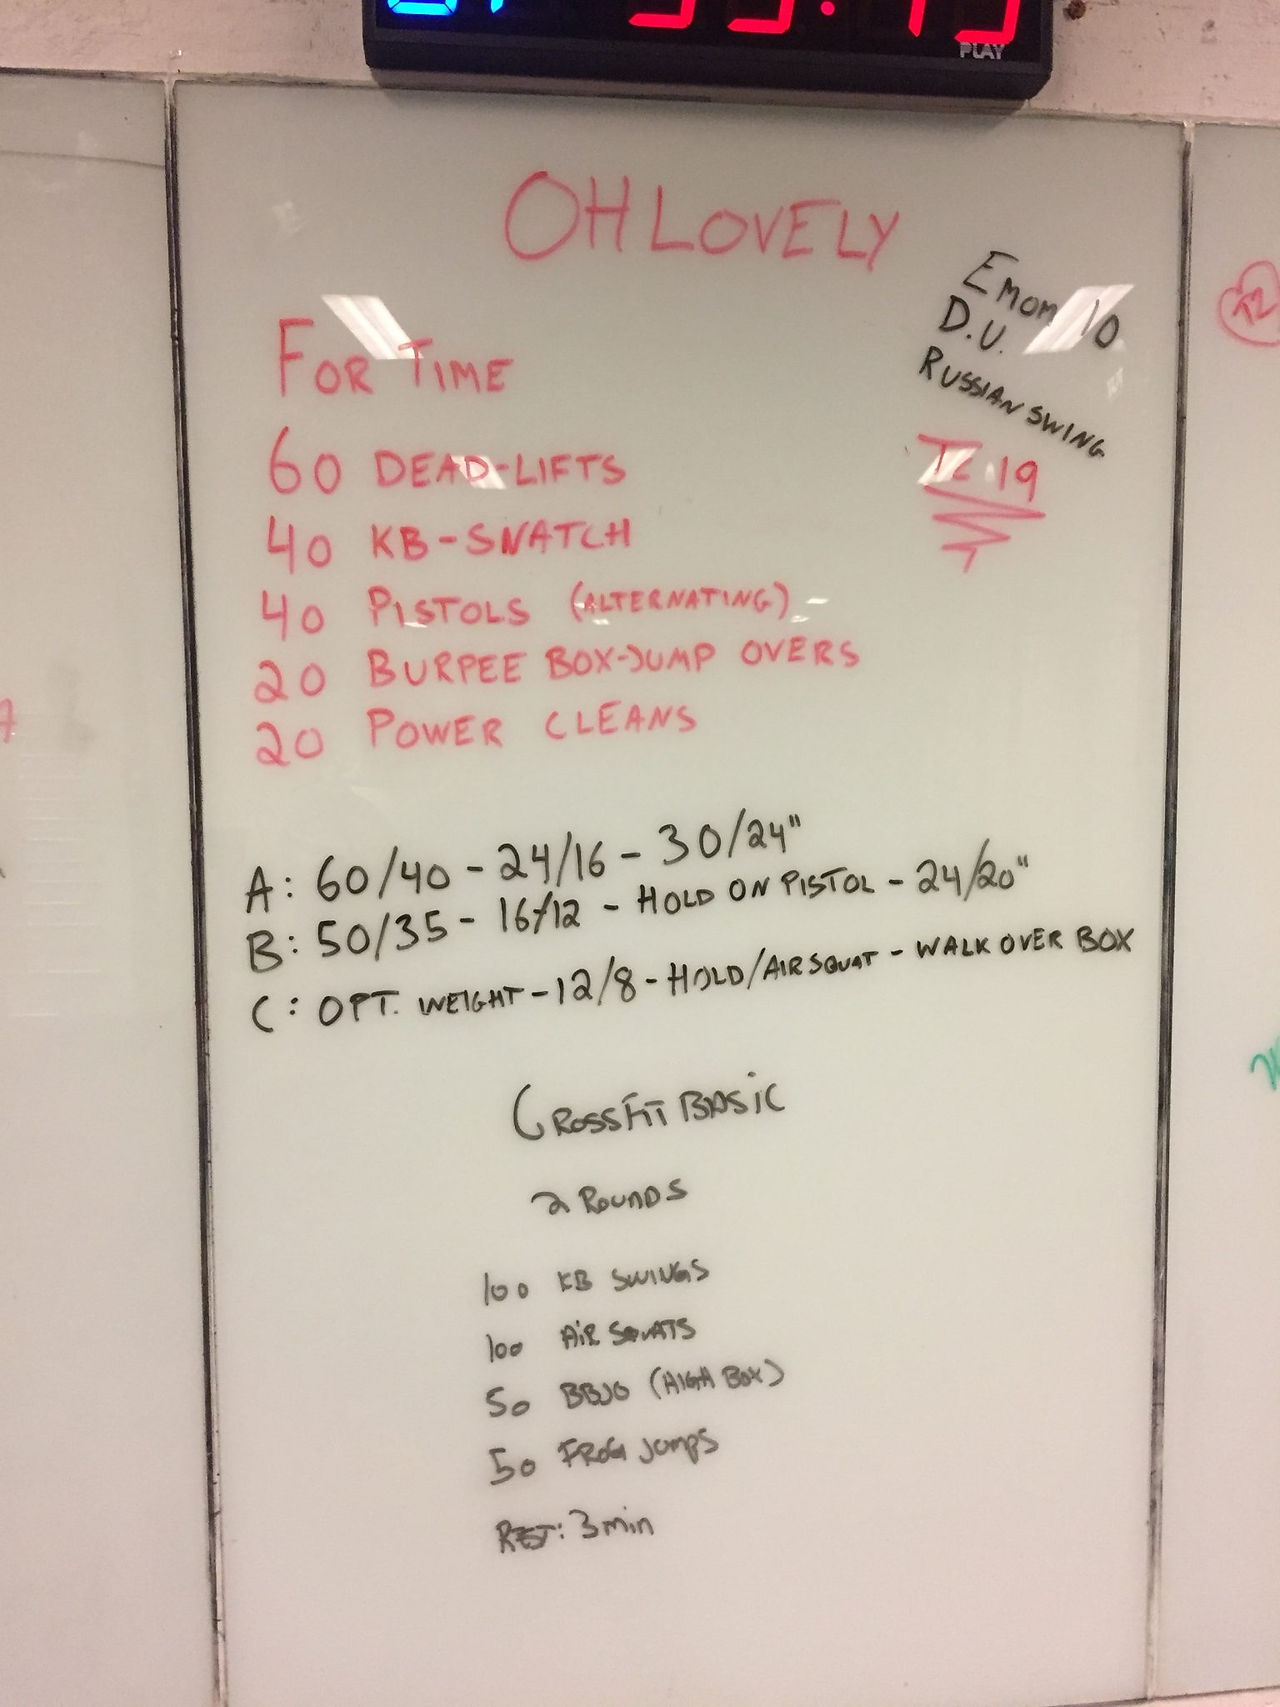 PLAY
OH LOVELY
EMOM 10
D.U.
RUSSIAN SWING
FOR TIME
TC 19
60 DEAD-LIFTS
40 KB-SNATCH
40 PISTOLS (ALTERNATING)
20 BURPEE BOX-JUMP OVERS
20 POWER CLEANS
A: 60/40 - 24/16 - 30/24"
B: 50/35 - 16/12 - HOLD ON PISTOL - 24/20"
C: OPT. WEIGHT - 12/8 - HOLD/AIR SQUAT - WALK OVER BOX
CROSSFIT BASIC
2 ROUNDS
100 KB SWINGS
100 AIR SQUATS
50 BBJO (HIGH BOX)
50 FROG JUMPS
REST: 3 min